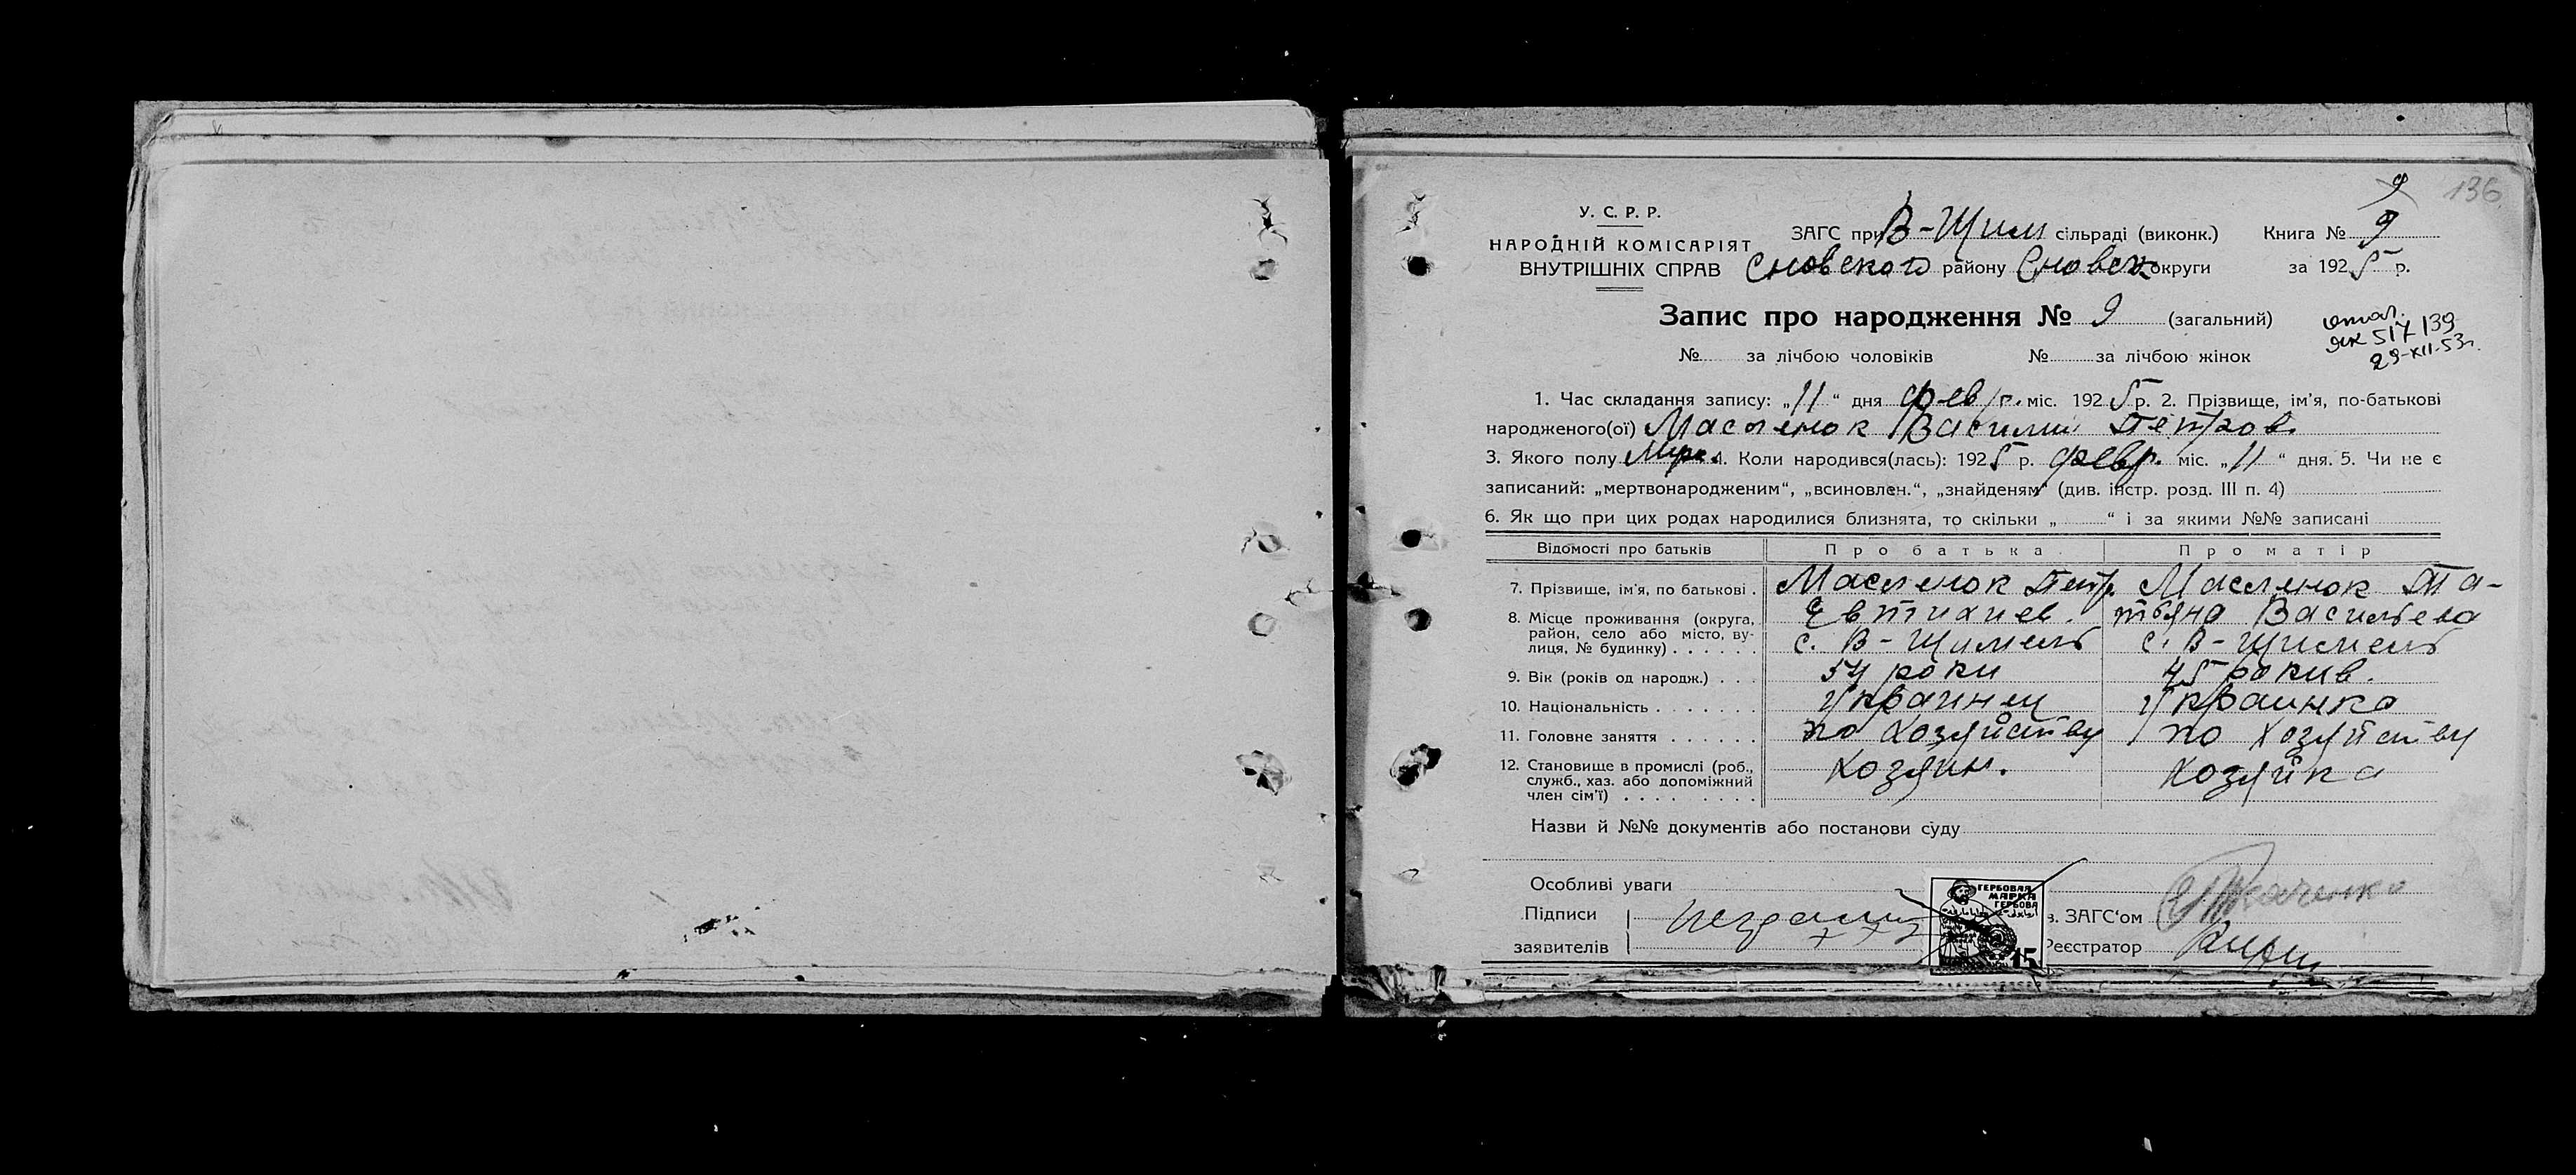 136
9
У. С. Р. Р.
НАРОДНІЙ КОМІСАРІЯТ
ВНУТРІШНІХ СПРАВ
ЗАГС при В-Щим сільраді (виконк.) Книга № 9
Сновского району Сновск округи за 1925 р.
Запис про народження № 9 (загальний)
№ за лічбою чоловіків № за лічбою жінок
517/39
29-XII-53г.
1. Час складання запису: „11“ дня февр. міс. 1925 р. 2. Прізвище, ім'я, по-батькові
народженого(ої) Масленок Василий Петров.
3. Якого полу 4. Коли народився(лась): 1925 р. февр. міс. „11“ дня. 5. Чи не є
записаний: „мертвонародженим“, „всиновлен.“, „знайденям“ (див. інстр. розд. III п. 4)
6. Як що при цих родах народилися близнята, то скільки „ “ і за якими №№ записані
Відомості про батьків Про батька Про матір
7. Прізвище, ім'я, по батькові . Масленок Петр. Масленок Та-
Евтихиев. тьяна Васильева
8. Місце проживання (округа,
район, село або місто, ву-
лиця, № будинку) . . . . . . с. В-Щимель с. В-Щимель
9. Вік (років од народж.) . . . 54 роки 45 рокив.
10. Національність . . . . . . . Украинец Украинка
11. Головне заняття . . . . . . по хозяйству по хозяйству
12. Становище в промислі (роб.,
служб., хаз. або допоміжний
член сім'ї) . . . . . . . . Хозяин. Хозяйка
Назви й №№ документів або постанови суду
Особливі уваги
Підписи
заявителів
ГЕРБОВАЯ
МАРКА
ГЕРБОВА
15
з. ЗАГС'ом Ткаченко
Реєстратор